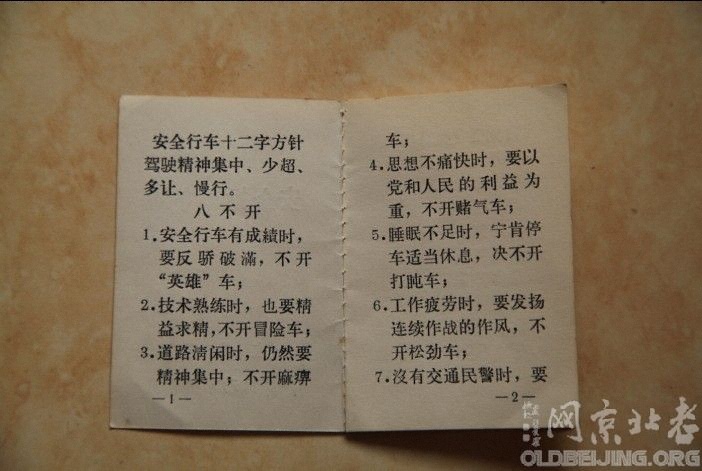 安全行车十二字方针
驾驶精神集中、少超、
多让、慢行。
八不开
1.安全行车有成績时,
要反骄破满,不开
“英雄”车;
2.技术熟练时,也要精
益求精,不开冒险车;
3.道路清闲时,仍然要
精神集中;不开麻痹
—1—
车;
4.思想不痛快时,要以
党和人民的利益为
重,不开赌气车;
5.睡眠不足时,宁肯停
车适当休息,决不开
打盹车;
6.工作疲劳时,要发扬
连续作战的作风,不
开松劲车;
7.沒有交通民警时,要
—2—
网京北老
OLDBEIJING.ORG